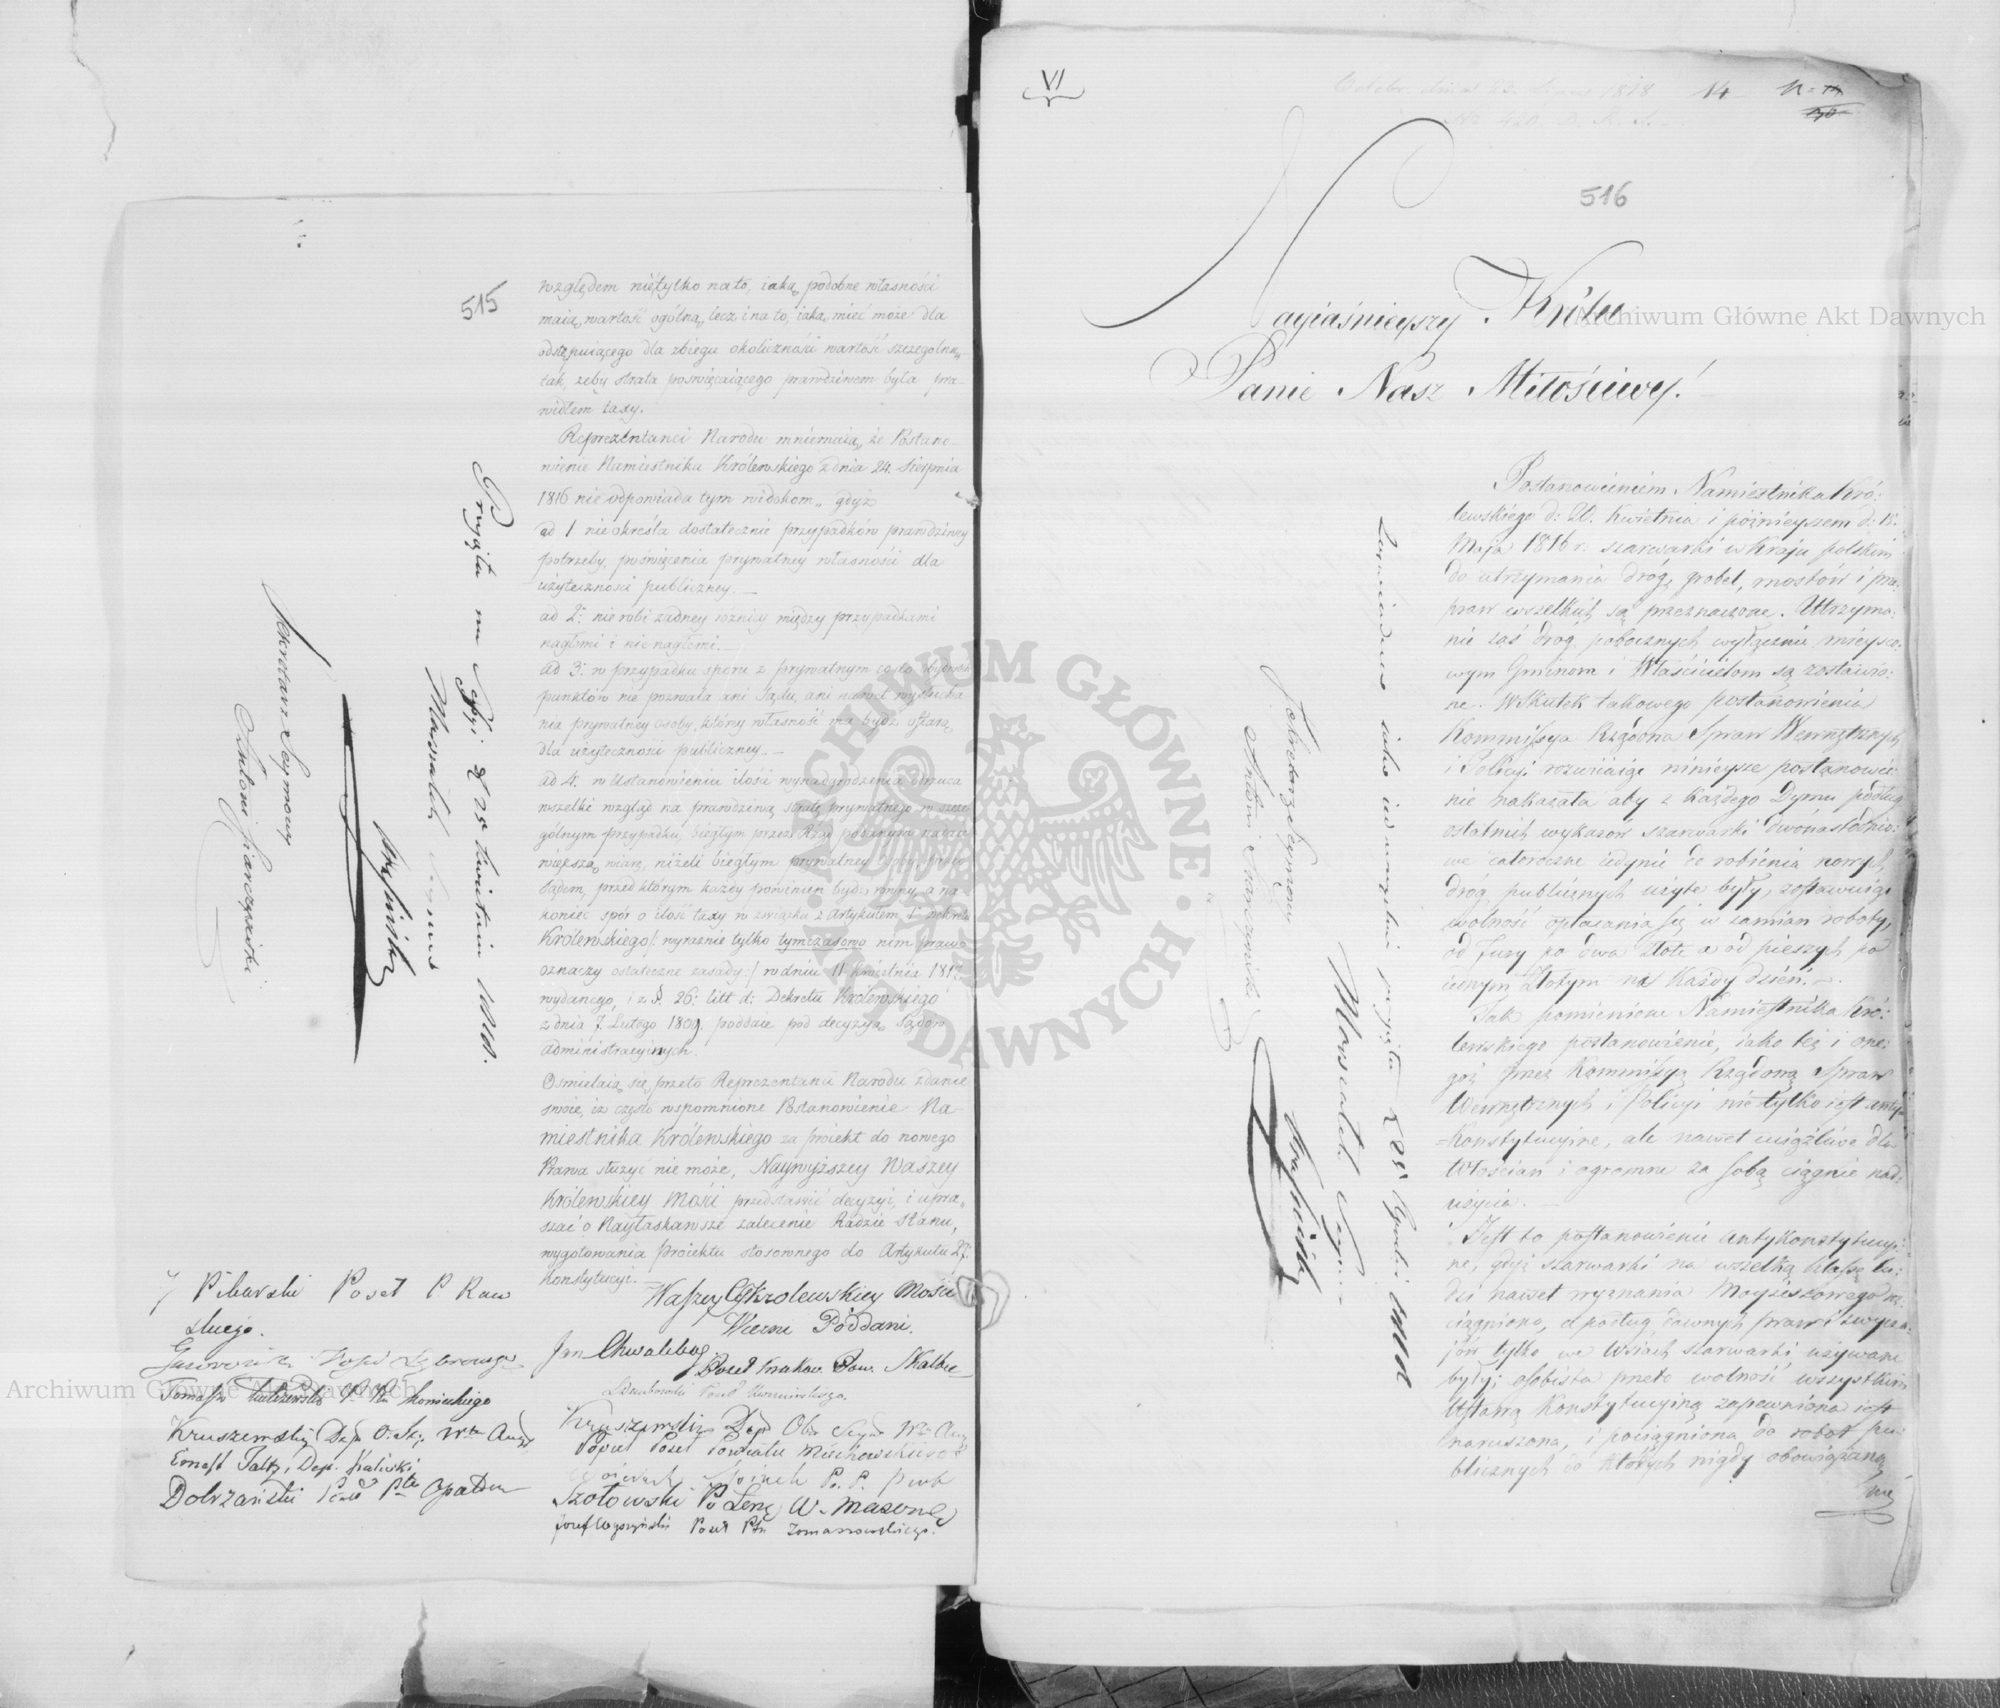 515
względem nietylko na to, iaką podobne własności
maią wartość ogólną, lecz i na to, iaką mieć może dla
odstępuiącego dla zbiegu okoliczności wartość szczególną,
tak, żeby strata poswięcaiącego prawdziwem była pra-
widłem taxy.
Reprezentanci Narodu mniemaią, że Postano-
wienie Namiestnika Królewskiego z dnia 24. Sierpnia
1816 nie odpowiada tym widokom, gdyż
ad 1 nie określa dostatecznie przypadków prawdziwey
potrzeby, poświęcenia prywatney własności dla
użyteczności publiczney. —
ad 2: nie robi żadney rożnicy między przypadkami
nagłemi i nie nagłemi. —
ad 3: w przypadku sporu z prywatnym co do
punktów nie pozwala ani Sądu, ani nawet wysłucha
nia prywatney osoby, którey własność ma bydź ofiarą
dla użyteczności publiczney. —
ad 4. w Ustanowieniu ilości wynadgrodzenia odrzuca
wszelki wzgląd na prawdziwą stratę prywatnego w szcze
gólnym przypadku; biegłym przez Rząd podanym
większą wiarę, niżeli biegłym prywatney osoby, przed
Sądem, przed którym każdy powinien bydź równy, a na
koniec spór o ilość taxy w związku z Artykułem 1. Dekretu
Królewskiego /: wyraźnie tylko tymczasowo nim prawo
oznaczy ostateczne zasady :/ w dniu 11 Kwietnia 181
wydanego, i z §. 26: litt d: Dekretu Królewskiego
z dnia 7. Lutego 1809. poddaie pod decyzyą Sądów
administracyinych.
Osmielaią się przeto Reprezentanci Narodu zdanie
swoie, iż często wspomnione Postanowienie Na-
miestnika Królewskiego za proiekt do nowego
Prawa służyć nie może, Naywyższey Waszey
Królewskiey Mości przedstawić decyzyi, i upra-
szać o Nayłaskawsze zalecenie Radzie Stanu,
wygotowania proiektu stosownego do Artykułu 27:
Konstytucyi. —
Waszey Królewskiey Mości
Wierni Poddani.
Jan Chwalibog
Poseł Krakow. Pow. Skalbm
Kruszewski Dep Ob
Popiel Poseł Powiatu Miechowskiego
Szołowski Po Łęcz W. Mazow
Poseł Ptu
J Piharski Poseł P Raw
skiego.
Tomasz
Kruszewski Dep O.
Ernest Faltz, Dep. Kaliski
Dobrzański Poseł Ptu Opatow
Przyięta na Sessyi d 25 Kwietnia 1818.
Marszałek Seymu
Krasiński
Sekretarz Seymowy
Antoni Skarczyński
VI
14
516
Nayiaśnieyszy Królu
Panie Nasz Miłościwy!
Postanowieniem Namiestnika Kró-
lewskiego d: 20. Kwietnia i późnieyszem d: 18.
Maja 1816 r: szarwarki w Kraju polskim
do utrzymania dróg, grobel, mostów i prze-
praw wszelkich są przeznaczone. Utrzyma-
nie zaś dróg pobocznych, wyłącznie mieysco-
wym Gminom i Właścicielom są zostawio-
ne. Wskutek takowego postanowienia
Kommissya Rządowa Spraw Wewnętrznych
i Policyi rozwiiaiąc ninieysze postanowie-
nie nakazała aby z każdego Dymu podług
ostatnich wykazow szarwarki dwónastodnio-
we całoroczne iedynie do robienia nowych
dróg publicznych użyte były, zostawuiąc
wolność opłacania się w zamian roboty,
od fury po dwa złote a od pieszych po
iednym złotym na każdy dzień. —
Tak pomienione Namiestnika Kró-
lewskiego postanowienie, iako też i one-
goż przez Kommissyą Rządową Spraw
Wewnętrznych i Policyi nie tylko iest anty-
Konstytucyine, ale nawet uciążliwe dla
Włościan i ogromne za sobą ciągnie nad-
użycia.
Jest to postanowienie antykonstytucyi-
ne, gdyż szarwarki na wszelką klassę lu-
dzi nawet wyznania Moyżeszowego
ciągniono, a podług dawnych praw i zwycza-
jów tylko we Wsiach szarwarki używane
były; osobista przeto wolność wszystkim
Ustawą Konstytucyiną zapewniona iest
naruszona, i pociągniona do robot pu-
blicznych do których nigdy obowiązaną
nie
przyięta d 25 Kwietnia 1818
Marszałek Seymu
Krasiński
Sekretarz Seymowy
Antoni Skarczyński
Archiwum Główne Akt Dawnych
Archiwum Główne Akt Dawnych
ARCHIWUM GŁÓWNE AKT DAWNYCH